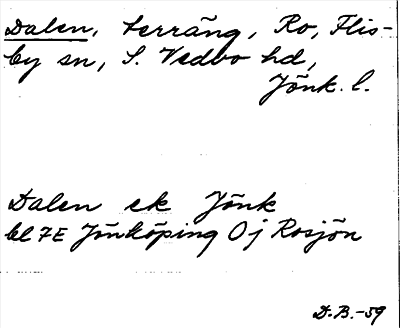 Dalen, terräng, Ro, Flis-
by sn, S. Vedbo hd,
Jönk. l.
Dalen ek Jönk
bl 7E Jönköping 0j Rosjön
D.B.-59